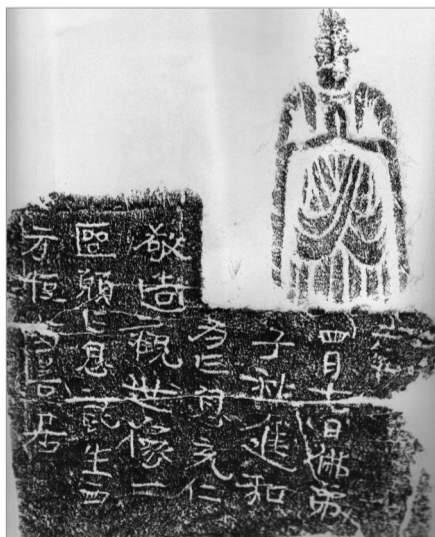 四月七日佛弟
子進和
為亡息仁
敬造觀世像一
區願亡息託生西
方恒居